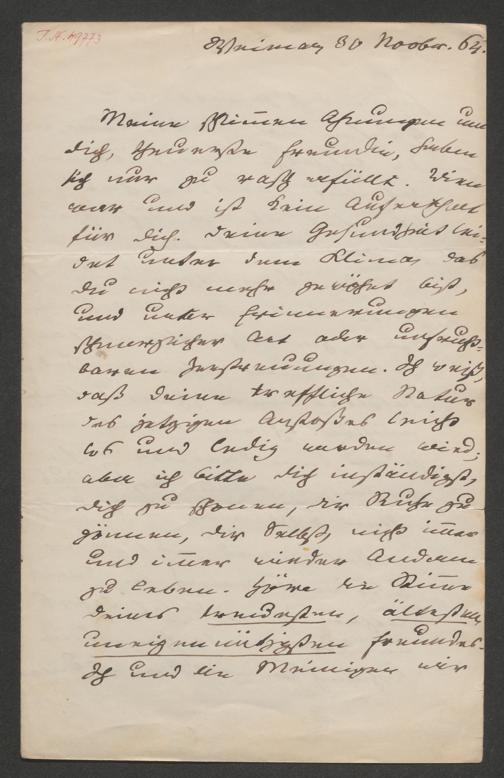 I.N. 49773
Weimar 30 Novbr. 64.
Meine schlimmen Ahnungen um
dich, theuerste Freundin, haben
sich nur zu rasch erfüllt. Wien
war und ist kein Aufenthalt
für dich. Deine Gesundheit lei-
det unter dem Klima, das
du nicht mehr gewöhnt bist,
und unter Erinnerungen
schmerzlicher Art oder unfrucht-
baren Zerstreuungen. Ich weiß,
daß deine treffliche Natur
des jetzigen Anstoßes leicht
los und ledig werden wird;
aber ich bitte dich inständigst,
dich zu schonen, dir Ruhe zu
gönnen, dir Selbst, nicht immer
und immer wieder Andern
zu leben. Höre die Stimme
deines treuesten, ältesten,
uneigennützigsten Freundes.
Ich und die Meinigen wir